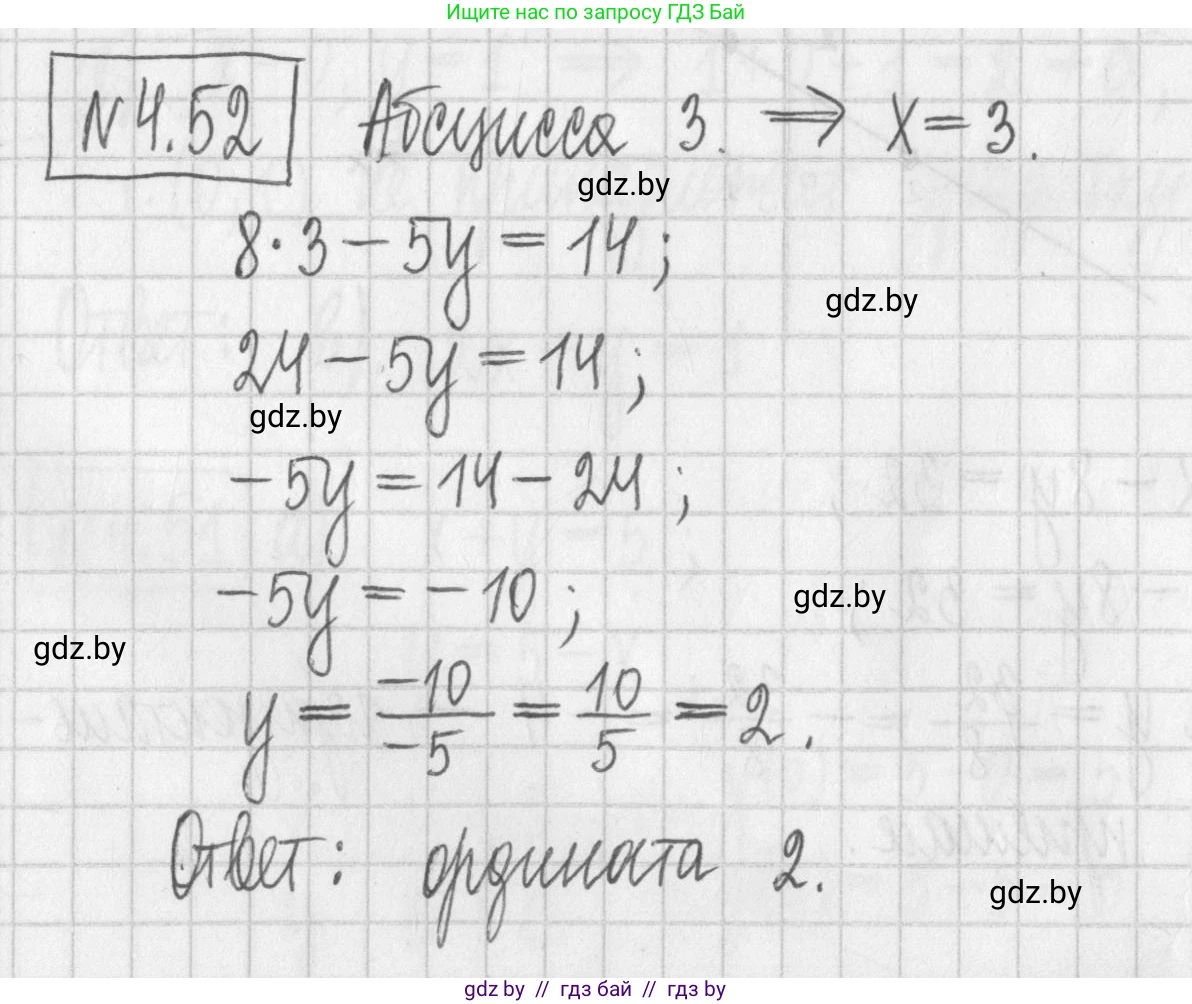 Ищите нас по запросу ГДЗ Бай
N 4.52 Абсцисса 3. ⇒ X = 3.
gdz.by
8·3 − 5y = 14;
gdz.by
24 − 5y = 14;
gdz.by
−5y = 14 − 24;
−5y = −10;
gdz.by
gdz.by
y = −10/−5 = 10/5 = 2.
Ответ: ордината 2.
gdz.by
gdz by // гдз бай // гдз by